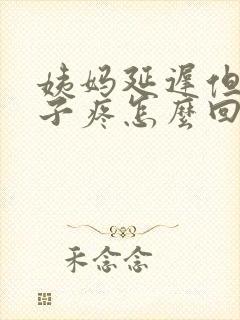 姨妈延遲但
子疼怎麼回
禾念念